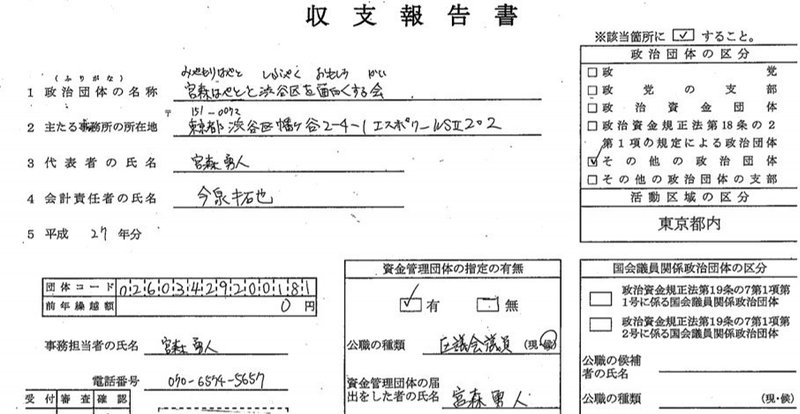 収支報告書
※該当箇所に☑すること。
みやもりはやと しぶやく おもしろ かい
(ふりがな)
1 政治団体の名称 宮森はやとと渋谷区を面白くする会
〒151-0072
2 主たる事務所の所在地 東京都渋谷区幡ヶ谷2-4-1エスポワールSⅡ202
3 代表者の氏名 宮森勇人
4 会計責任者の氏名
5 平成 27 年分
政治団体の区分
□政党
□政党の支部
□政治資金団体
□政治資金規正法第18条の2
第1項の規定による政治団体
☑その他の政治団体
□その他の政治団体の支部
活動区域の区分
東京都内
団体コード 02603429200181
前年繰越額 0円
事務担当者の氏名 宮森勇人
電話番号 070-6574-5657
受付審査確認
資金管理団体の指定の有無
☑有 □無
公職の種類 区議会議員 (現・候)
資金管理団体の届
出をした者の氏名 宮森勇人
国会議員関係政治団体の区分
□ 政治資金規正法第19条の7第1項第
1号に係る国会議員関係政治団体
□ 政治資金規正法第19条の7第1項第
2号に係る国会議員関係政治団体
公職の候補
者の氏名
公職の種類 (現・候)